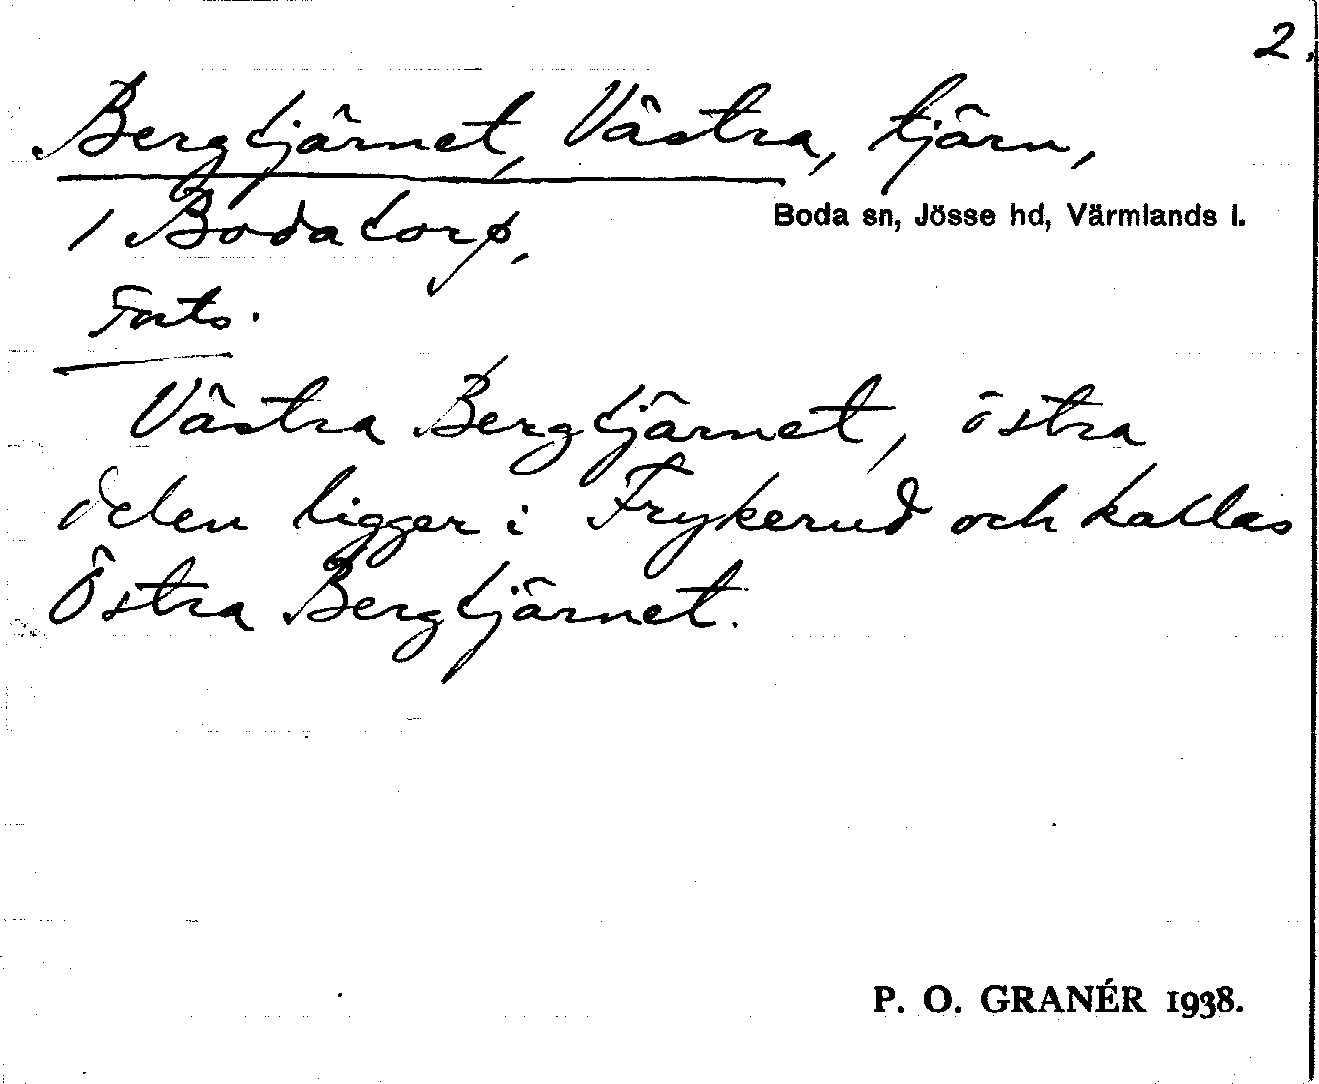 2.
Bergtjärnet, Västra, tjärn,
1 Bodatorp,
Boda sn, Jösse hd, Värmlands l.
Forts.
Västra Bergtjärnet, östra
delen ligger i Frykerud och kallas
Östra Bergtjärnet.
P. O. GRANÉR 1938.